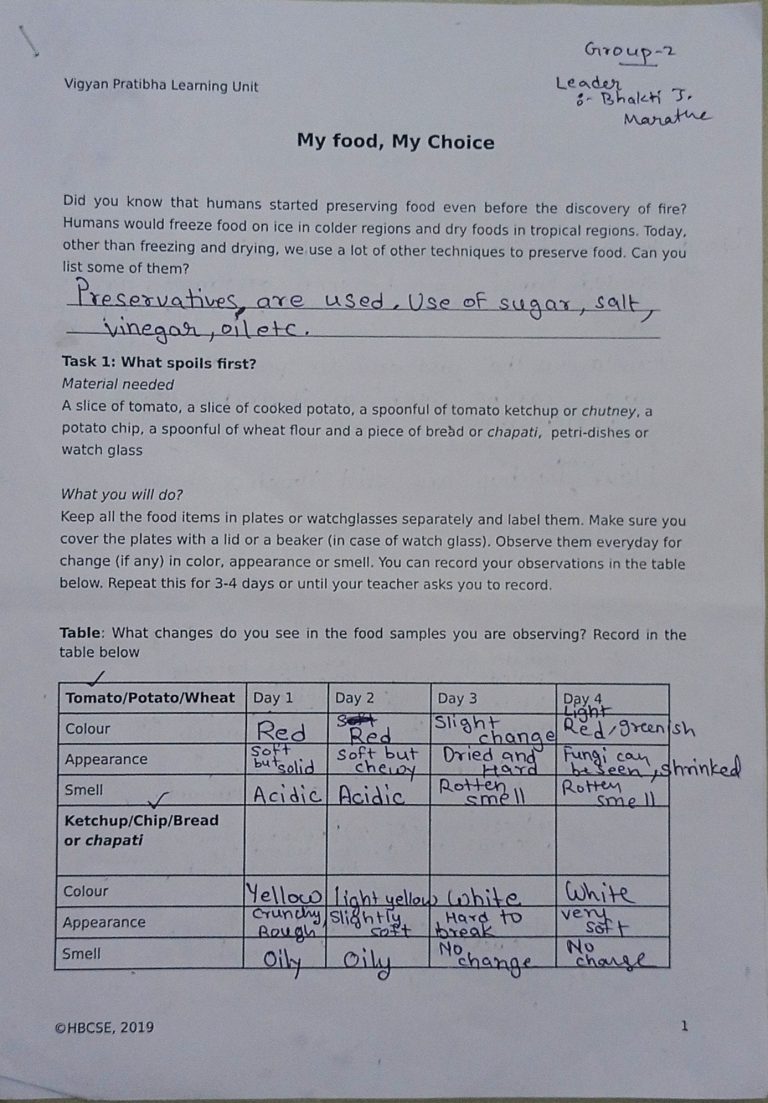 Group-2
Vigyan Pratibha Learning Unit
Leader
:- Bhakti J.
Marathe
My food, My Choice
Did you know that humans started preserving food even before the discovery of fire?
Humans would freeze food on ice in colder regions and dry foods in tropical regions. Today,
other than freezing and drying, we use a lot of other techniques to preserve food. Can you
list some of them?
Preservatives, are used. Use of sugar, salt,
vinegar, oil etc.
Task 1: What spoils first?
Material needed
A slice of tomato, a slice of cooked potato, a spoonful of tomato ketchup or chutney, a
potato chip, a spoonful of wheat flour and a piece of bread or chapati, petri-dishes or
watch glass
What you will do?
Keep all the food items in plates or watchglasses separately and label them. Make sure you
cover the plates with a lid or a beaker (in case of watch glass). Observe them everyday for
change (if any) in color, appearance or smell. You can record your observations in the table
below. Repeat this for 3-4 days or until your teacher asks you to record.
Table: What changes do you see in the food samples you are observing? Record in the
table below
Tomato/Potato/Wheat Day 1 Day 2 Day 3 Day 4
Colour Red Red Slight change Light Red/greenish
Appearance Soft but solid Soft but chewy Dried and Hard Fungi can be seen, shrinked
Smell Acidic Acidic Rotten smell Rotten smell
Ketchup/Chip/Bread
or chapati
Colour Yellow light yellow White White
Appearance Crunchy, Rough Slightly soft Hard to break very soft
Smell Oily Oily No change No change
©HBCSE, 2019
1